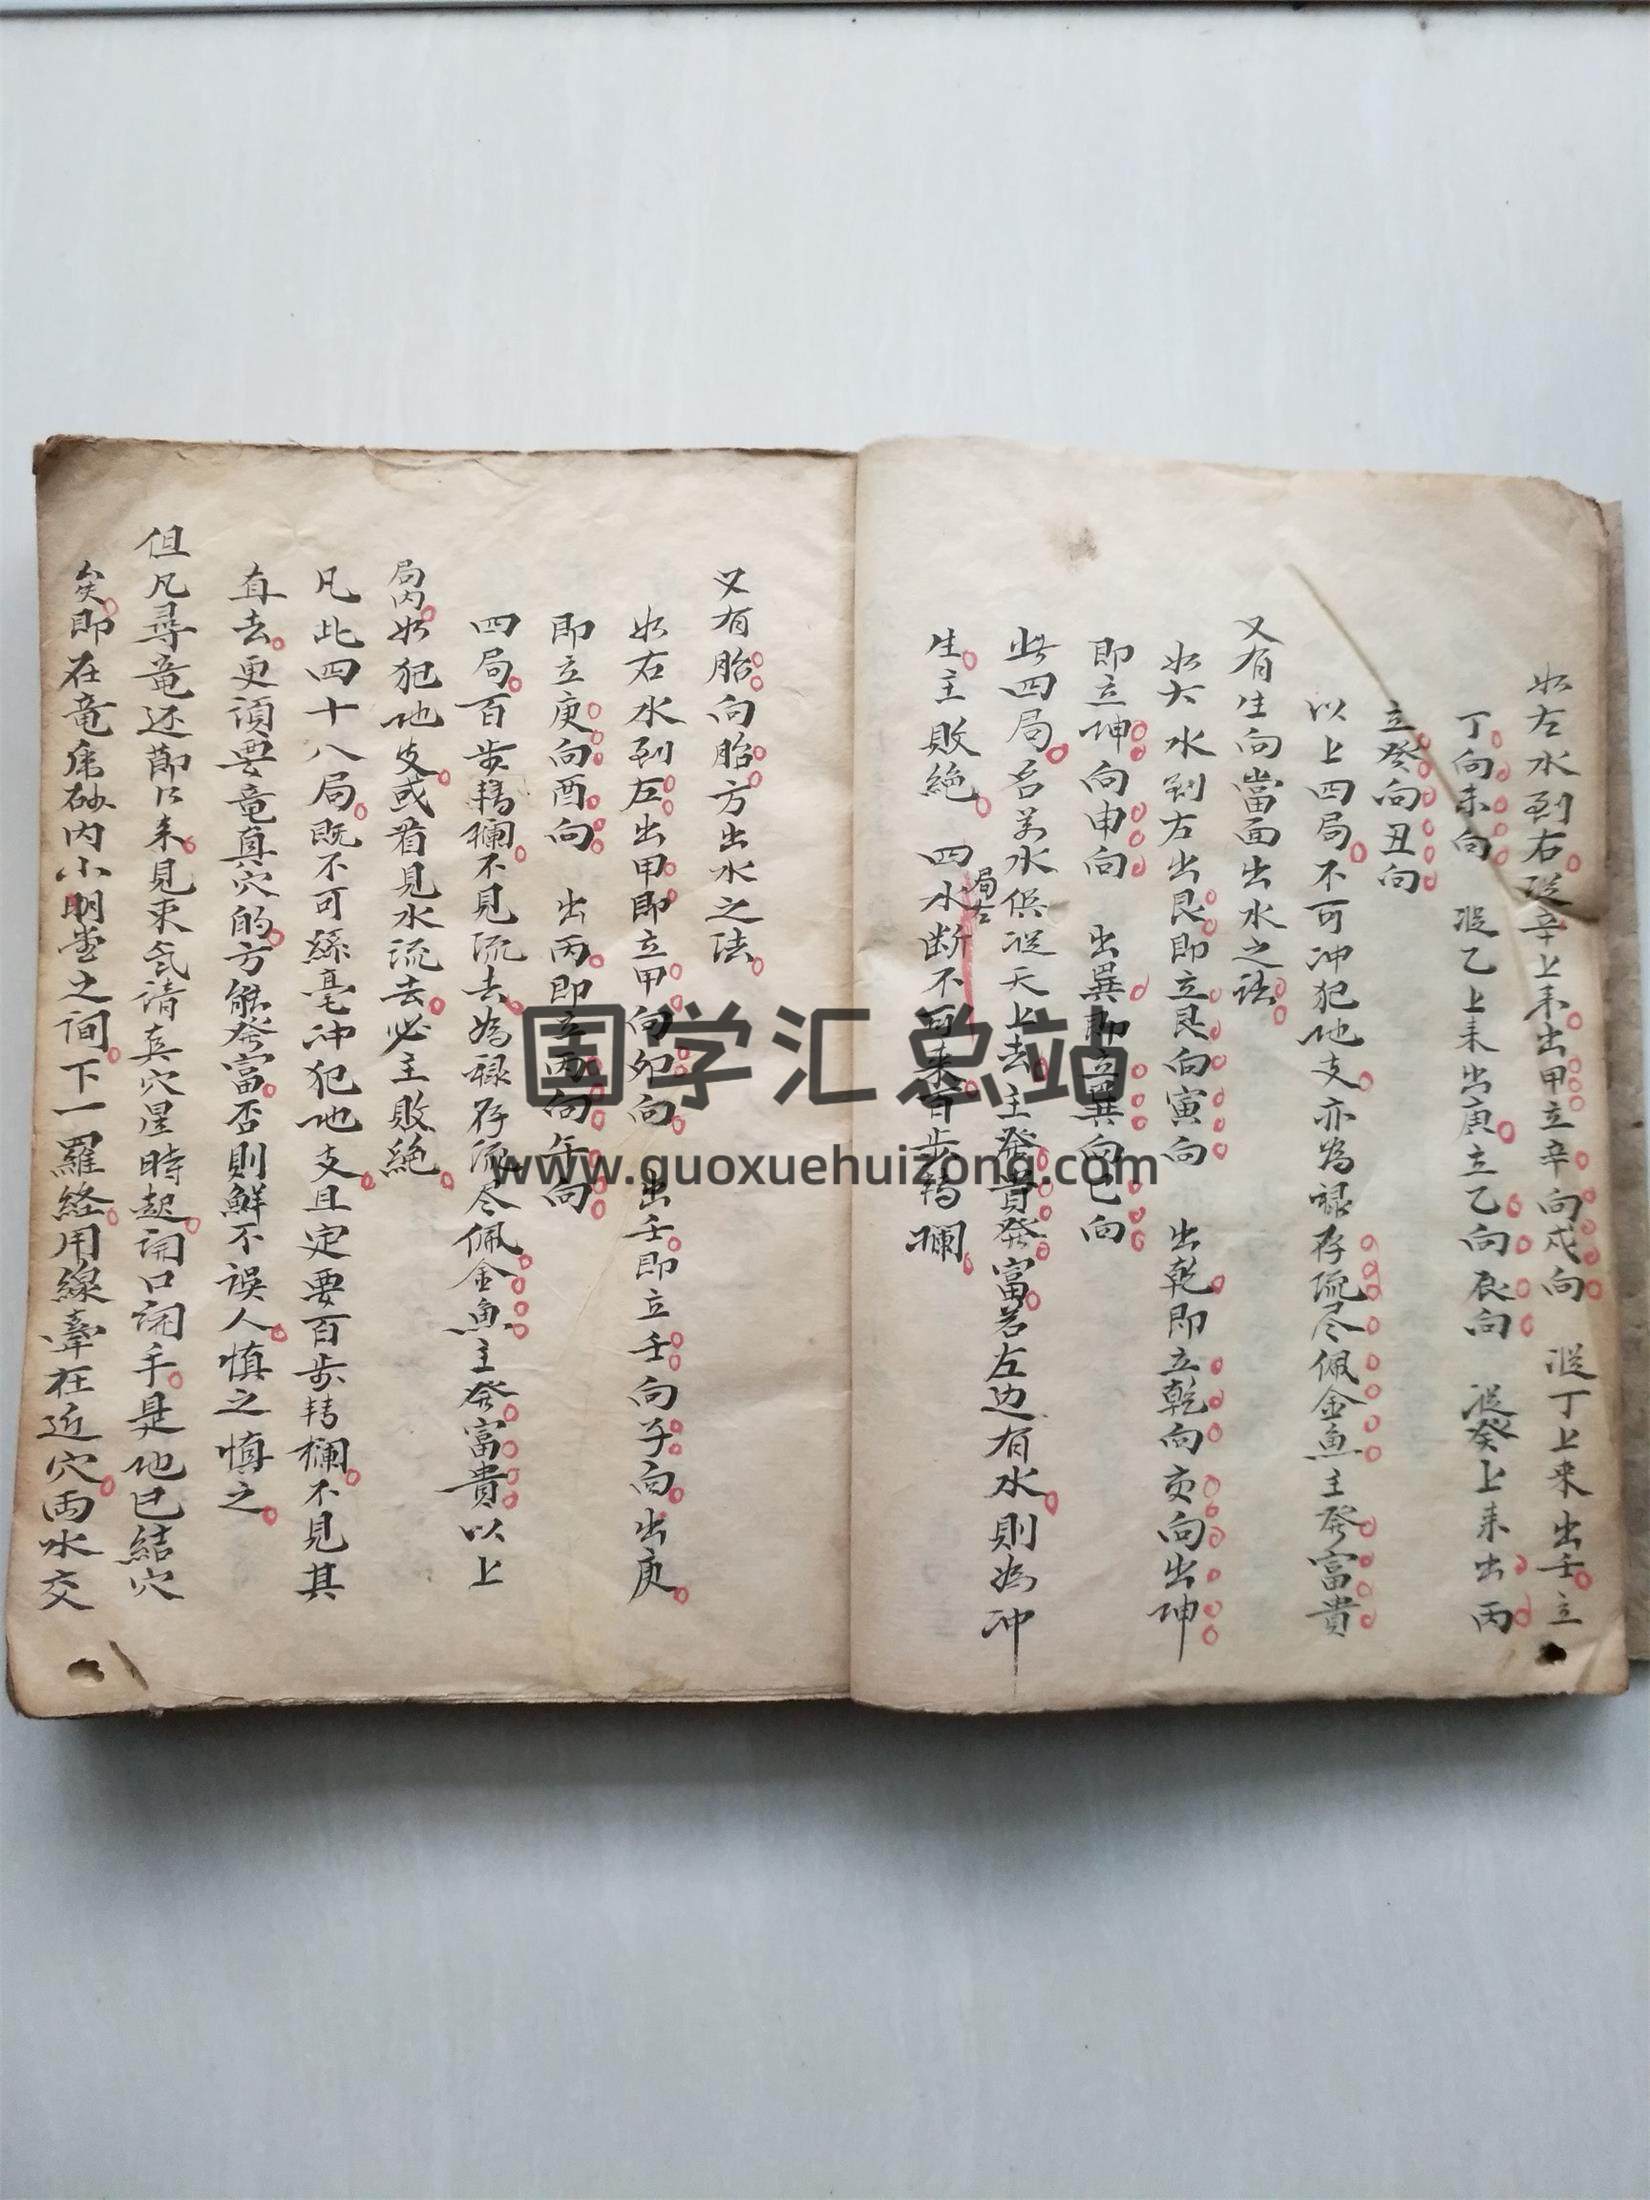 如左水到右從辛上来出甲立辛向戍向　從丁上来出壬立
丁向未向　從乙上来出庚立乙向辰向　從癸上来出丙
立癸向丑向
以上四局不可冲犯地支亦為禄存流尽佩金魚主發富貴
又有生向當面出水之法
如大水到左出艮即立艮向寅向　出乾即立乾向亥向出坤
即立坤向申向　出巽即立巽向巳向
此四局名為水俱從天上去主發貴發富若左边有水則為冲
生主敗絶　四水断不可来百步轉欄
局右
又有胎向胎方出水之法
如右水到左出甲即立甲向卯向　出壬即立壬向子向出庚
即立庚向酉向　出丙即立丙向午向
四局百步轉欄不見流去為禄存流尽佩金魚主發富貴以上
局内如犯地支或看見水流去必主敗絶
凡此四十八局既不可絲毫冲犯地支且定要百步轉欄不見其
直去更須要竜真穴的方能發富否則鮮不誤人慎之慎之
但凡尋竜还節以来見束気清真穴星時起開口開手是他已結穴
矣即在竜虎砂内小明堂之间下一羅経用線牽在近穴両水交
国学汇总站
www.guoxuehuizong.com